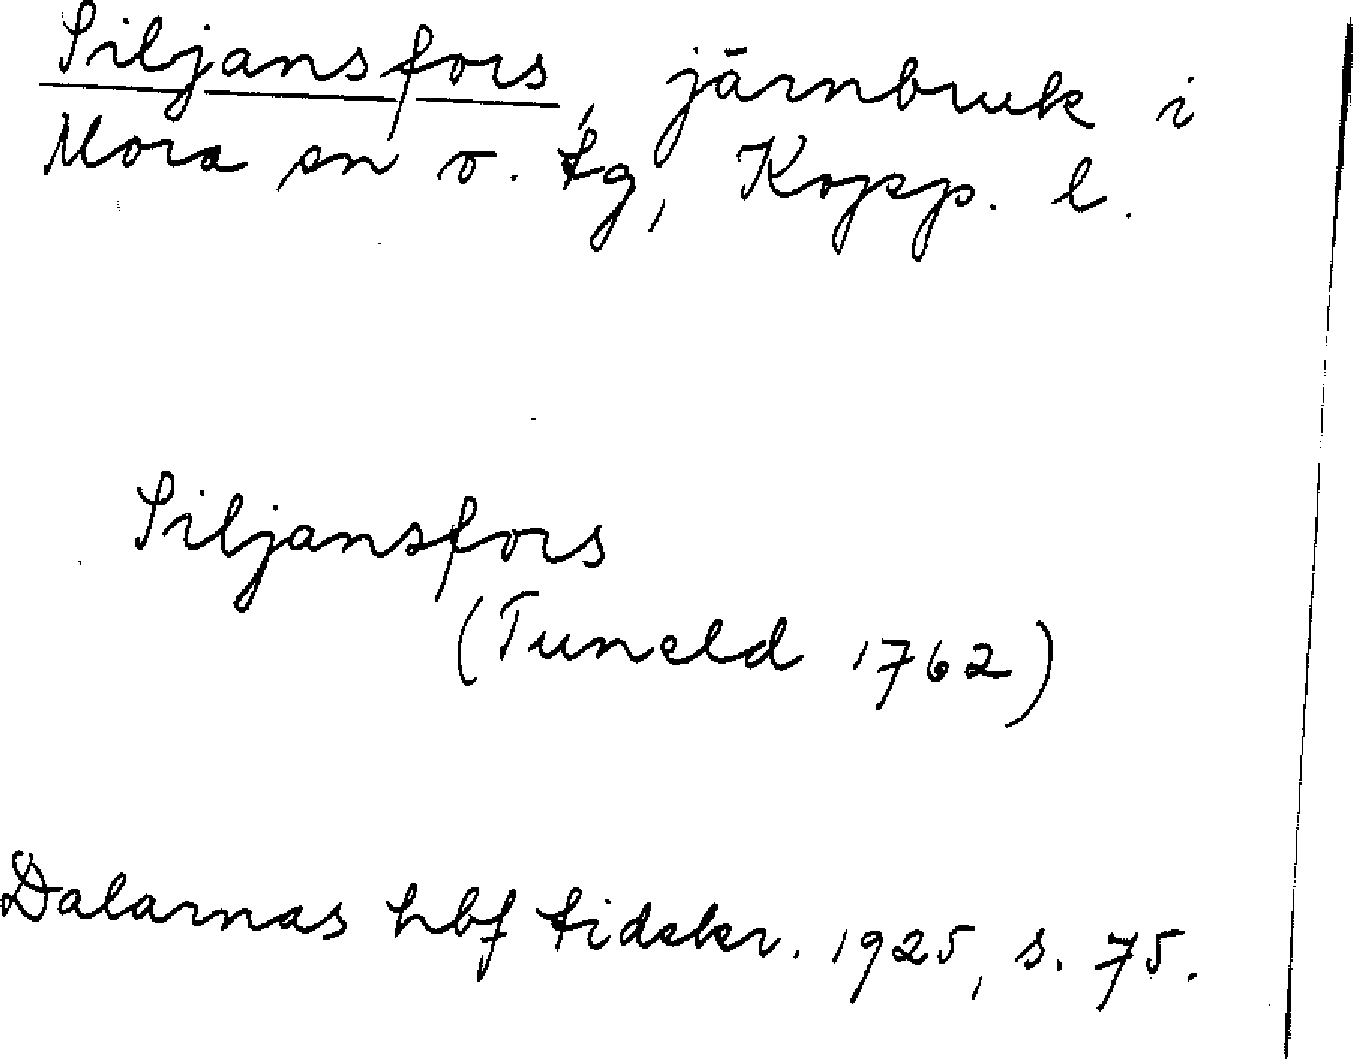 Siljansfors, järnbruk i
Mora sn o. tg, Kopp. l.
Siljansfors
(Tuneld 1762)
Dalarnas hbf tidskr. 1925, s. 75.